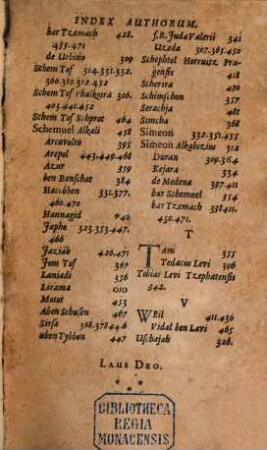 INDEX AUTHORUM.
bar Tzemach 428.
455.471
de Urbino 309
Schem Tof 314.331.332.
360.380.412.452
Schem Tof Phalkgira 306.
403.441.452
Schem Tof Schprot 464
Schemuel Alkali 458
Arcuvolte 395
Arepol 443.449.468
Azur 359
ben Banschat 384
Haccohen 331.377.
460.470
Hannagid
Japhe 323.353.447.
466
Jaziab 426.471
Jom Tof 367
Laniadi 356
Lerama 010
Motot 453
Aben Schusen 467
Sirsa 368.378.446
aben Tybbon 447
f.R. Juda Valerii 341
Uzeda 307.365.450
Schephtel Horruitz Pra-
gensis 418
Scherira 430
Schimschon 357
Serachja 482
Simcha 368
Simeon 332.351.455
Simeon Alkabizius 312
Duran 309.364
Kejara 334
de Modena 397.411
bar Schemuel 854
bar Tzemach 338.411.
450.471.
T
TAm 355
Tedacus Levi 396
Tobias Levi Tzephatensis
342.
V
WEil 411.436
Vidal ben Levi 465
Uschajah 326.
LAUS DEO.
BIBLIOTHECA
REGIA
MONACENSIS